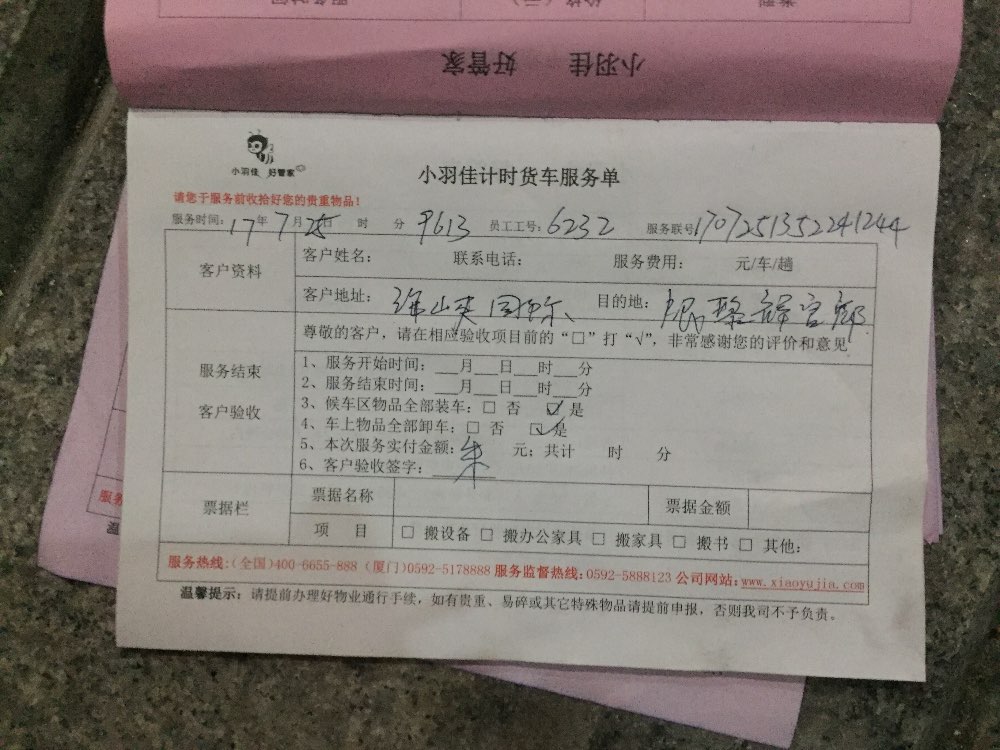 小羽佳 好管家
小羽佳 好管家
小羽佳计时货车服务单
请您于服务前收拾好您的贵重物品！
服务时间：17年7月25日 时 分 9613 员工工号：6232 服务联号1707251352241244
客户资料
客户姓名： 联系电话： 服务费用： 元/车/趟
客户地址： 目的地：
尊敬的客户，请在相应验收项目前的“□”打“√”，非常感谢您的评价和意见
服务结束
客户验收
1、服务开始时间：___月___日___时___分
2、服务结束时间：___月___日___时___分
3、候车区物品全部装车：□ 否 ☑ 是
4、车上物品全部卸车：□ 否 ☑ 是
5、本次服务实付金额： 元；共计 时 分
6、客户验收签字：朱
票据栏
票据名称 票据金额
项 目 □ 搬设备 □ 搬办公家具 □ 搬家具 □ 搬书 □ 其他：
服务热线：(全国)400-6655-888 (厦门)0592-5178888 服务监督热线：0592-5888123 公司网站：www.xiaoyujia.com
温馨提示：请提前办理好物业通行手续，如有贵重、易碎或其它特殊物品请提前申报，否则我司不予负责。